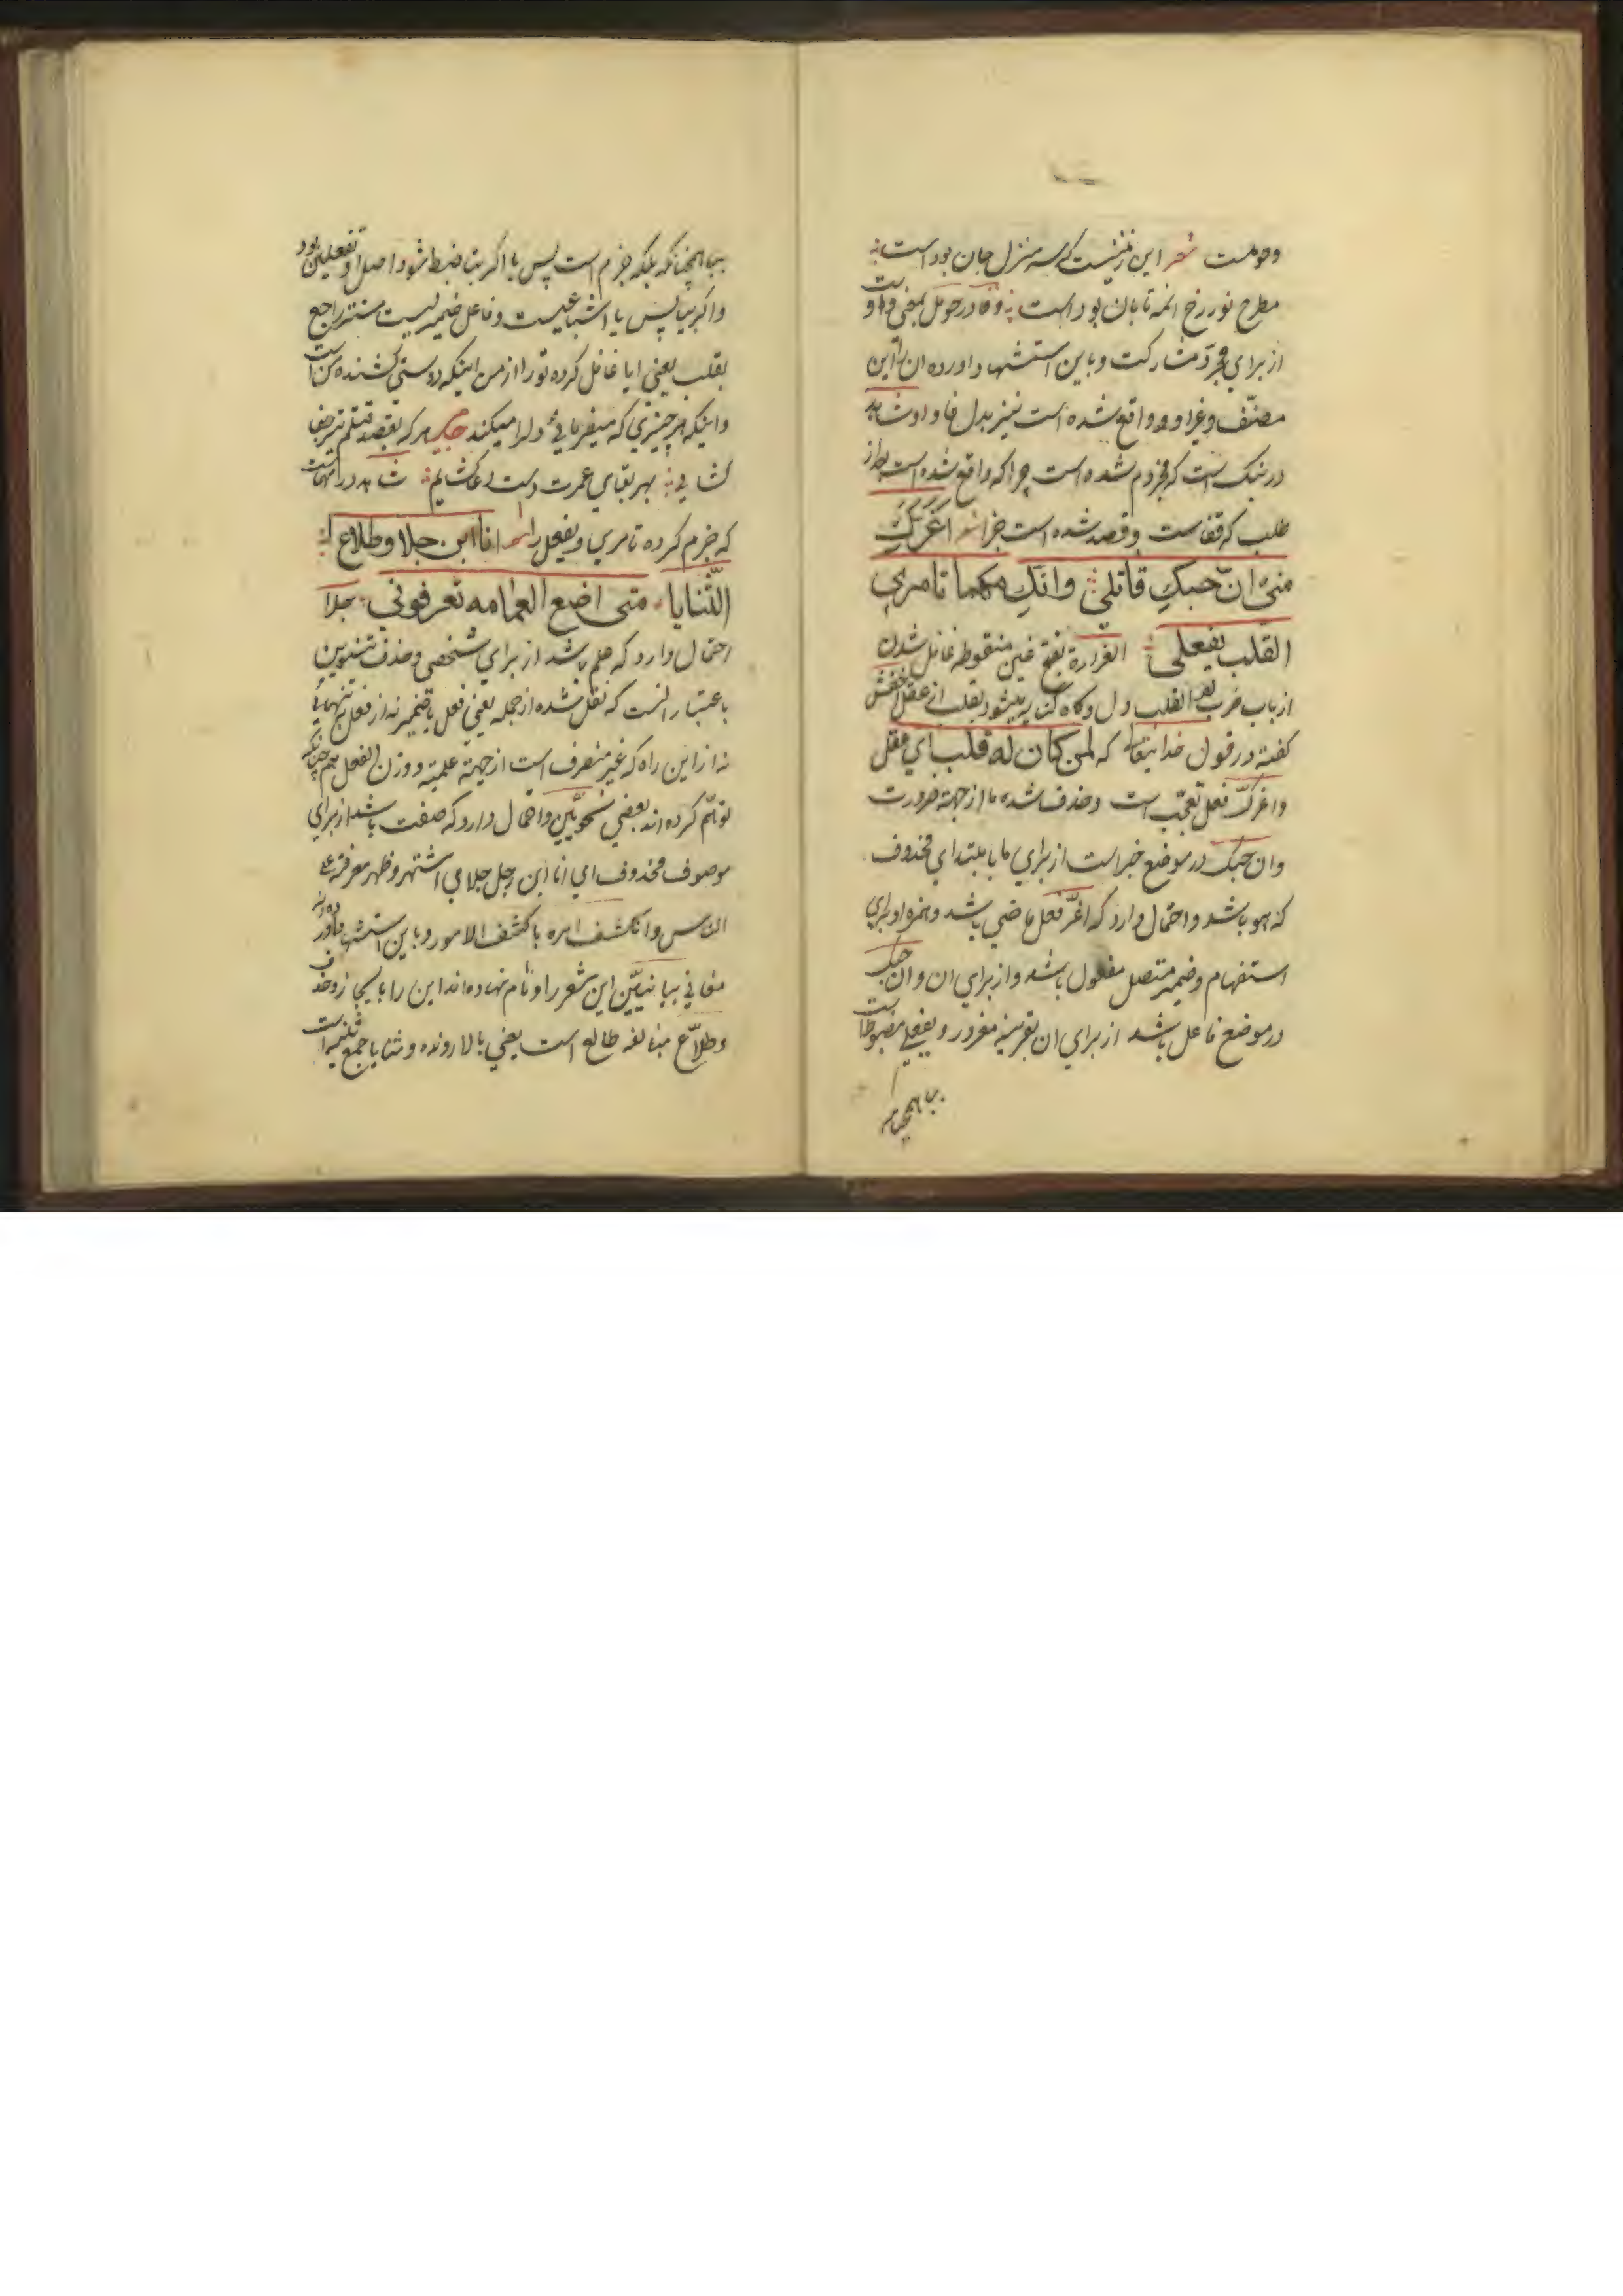 وحوملست شعر این زمینیست که سر منزل جان بوداست
مطرح نور رخ انمه تابان بوداست وفا در حومل بمعنی واو است
از برای مجرد مشارکت و باین استشهاد اورده ان را این
مصنف و غیر او و واقع شده است نیز بدل فا واو شاهد
در نبک است که مجزوم شده است چرا که واقع شده است بعد از
طلب که قفاست وقصد شده است جزا شعر اغرّکِ
منی انّ حبکِ قاتلی وانکِ مهما تامری
القلب یفعلی الغرارة بفتح غین منقوطه غافل شدن
از باب ضرب یضرب القلب دل و گاه کنایه میشود بقلب از عقل اخفش
گفته در قول خدایتعالی که لمن کان له قلب ای عقل
واغرکّ فعل تعجّب است وحذف شده ما از جهة ضرورت
وان حبک در موضع خبر است از برای ما یا مبتدای محذوف
که هو باشد و احتمال دارد که اغرّ فعل ماضی باشد و همزه او برای
استفهام و ضمیر متصل مفعول باشد و از برای ان وان حبک
در موضع فاعل باشد از برای ان بقرینه مغرور و یفعلی مضبوط است
بیا همچنانکه
بیا همچنانکه بلکه جزم است پس یا اکر بتا ضبط شود اصل او تفعلین بود
واکر بیا پس یا اشباعیست وفاعل ضمیریست مستتر راجع
بقلب یعنی ایا غافل کرده تو را از من اینکه دوستی کشنده من است
و اینکه هر چیزی که میفرمائی دلرا میکند هر که بقصد قتلم تیر جفا
کشائی بهر بقای عمرت دست دعا کشایم شاهد در اینهاست
که جزم کرده تامری ویفعل را شعر انا ابن جلا وطلاع
الثّنایا متی اضع العمامه تعرفونی جلا
احتمال دارد که علم باشد از برای شخصی وحذف تنوین
باعتبار انست که نقل شده از جمله یعنی فعل باضمیر نه از فعل تنهائی
نه از این راه که غیر منصرف است از جهة علمیّه و وزن الفعل همچنانکه
توهّم کرده اند بعضی نحویّین واحتمال دارد که صفت باشد از برای
موصوف محذوف ای انا ابن رجل جلا ای اشتهر وظهر معرفته علی
الناس وانکشف امره یا کشف الامور و باین استشهاد اورده اند
معانی بیانیّین این شعر را و نام نهاده اند این را بایجاز وحذف
وطلاّع مبالغه طالع است یعنی بالا رونده و ثنایا جمع ثنیه است